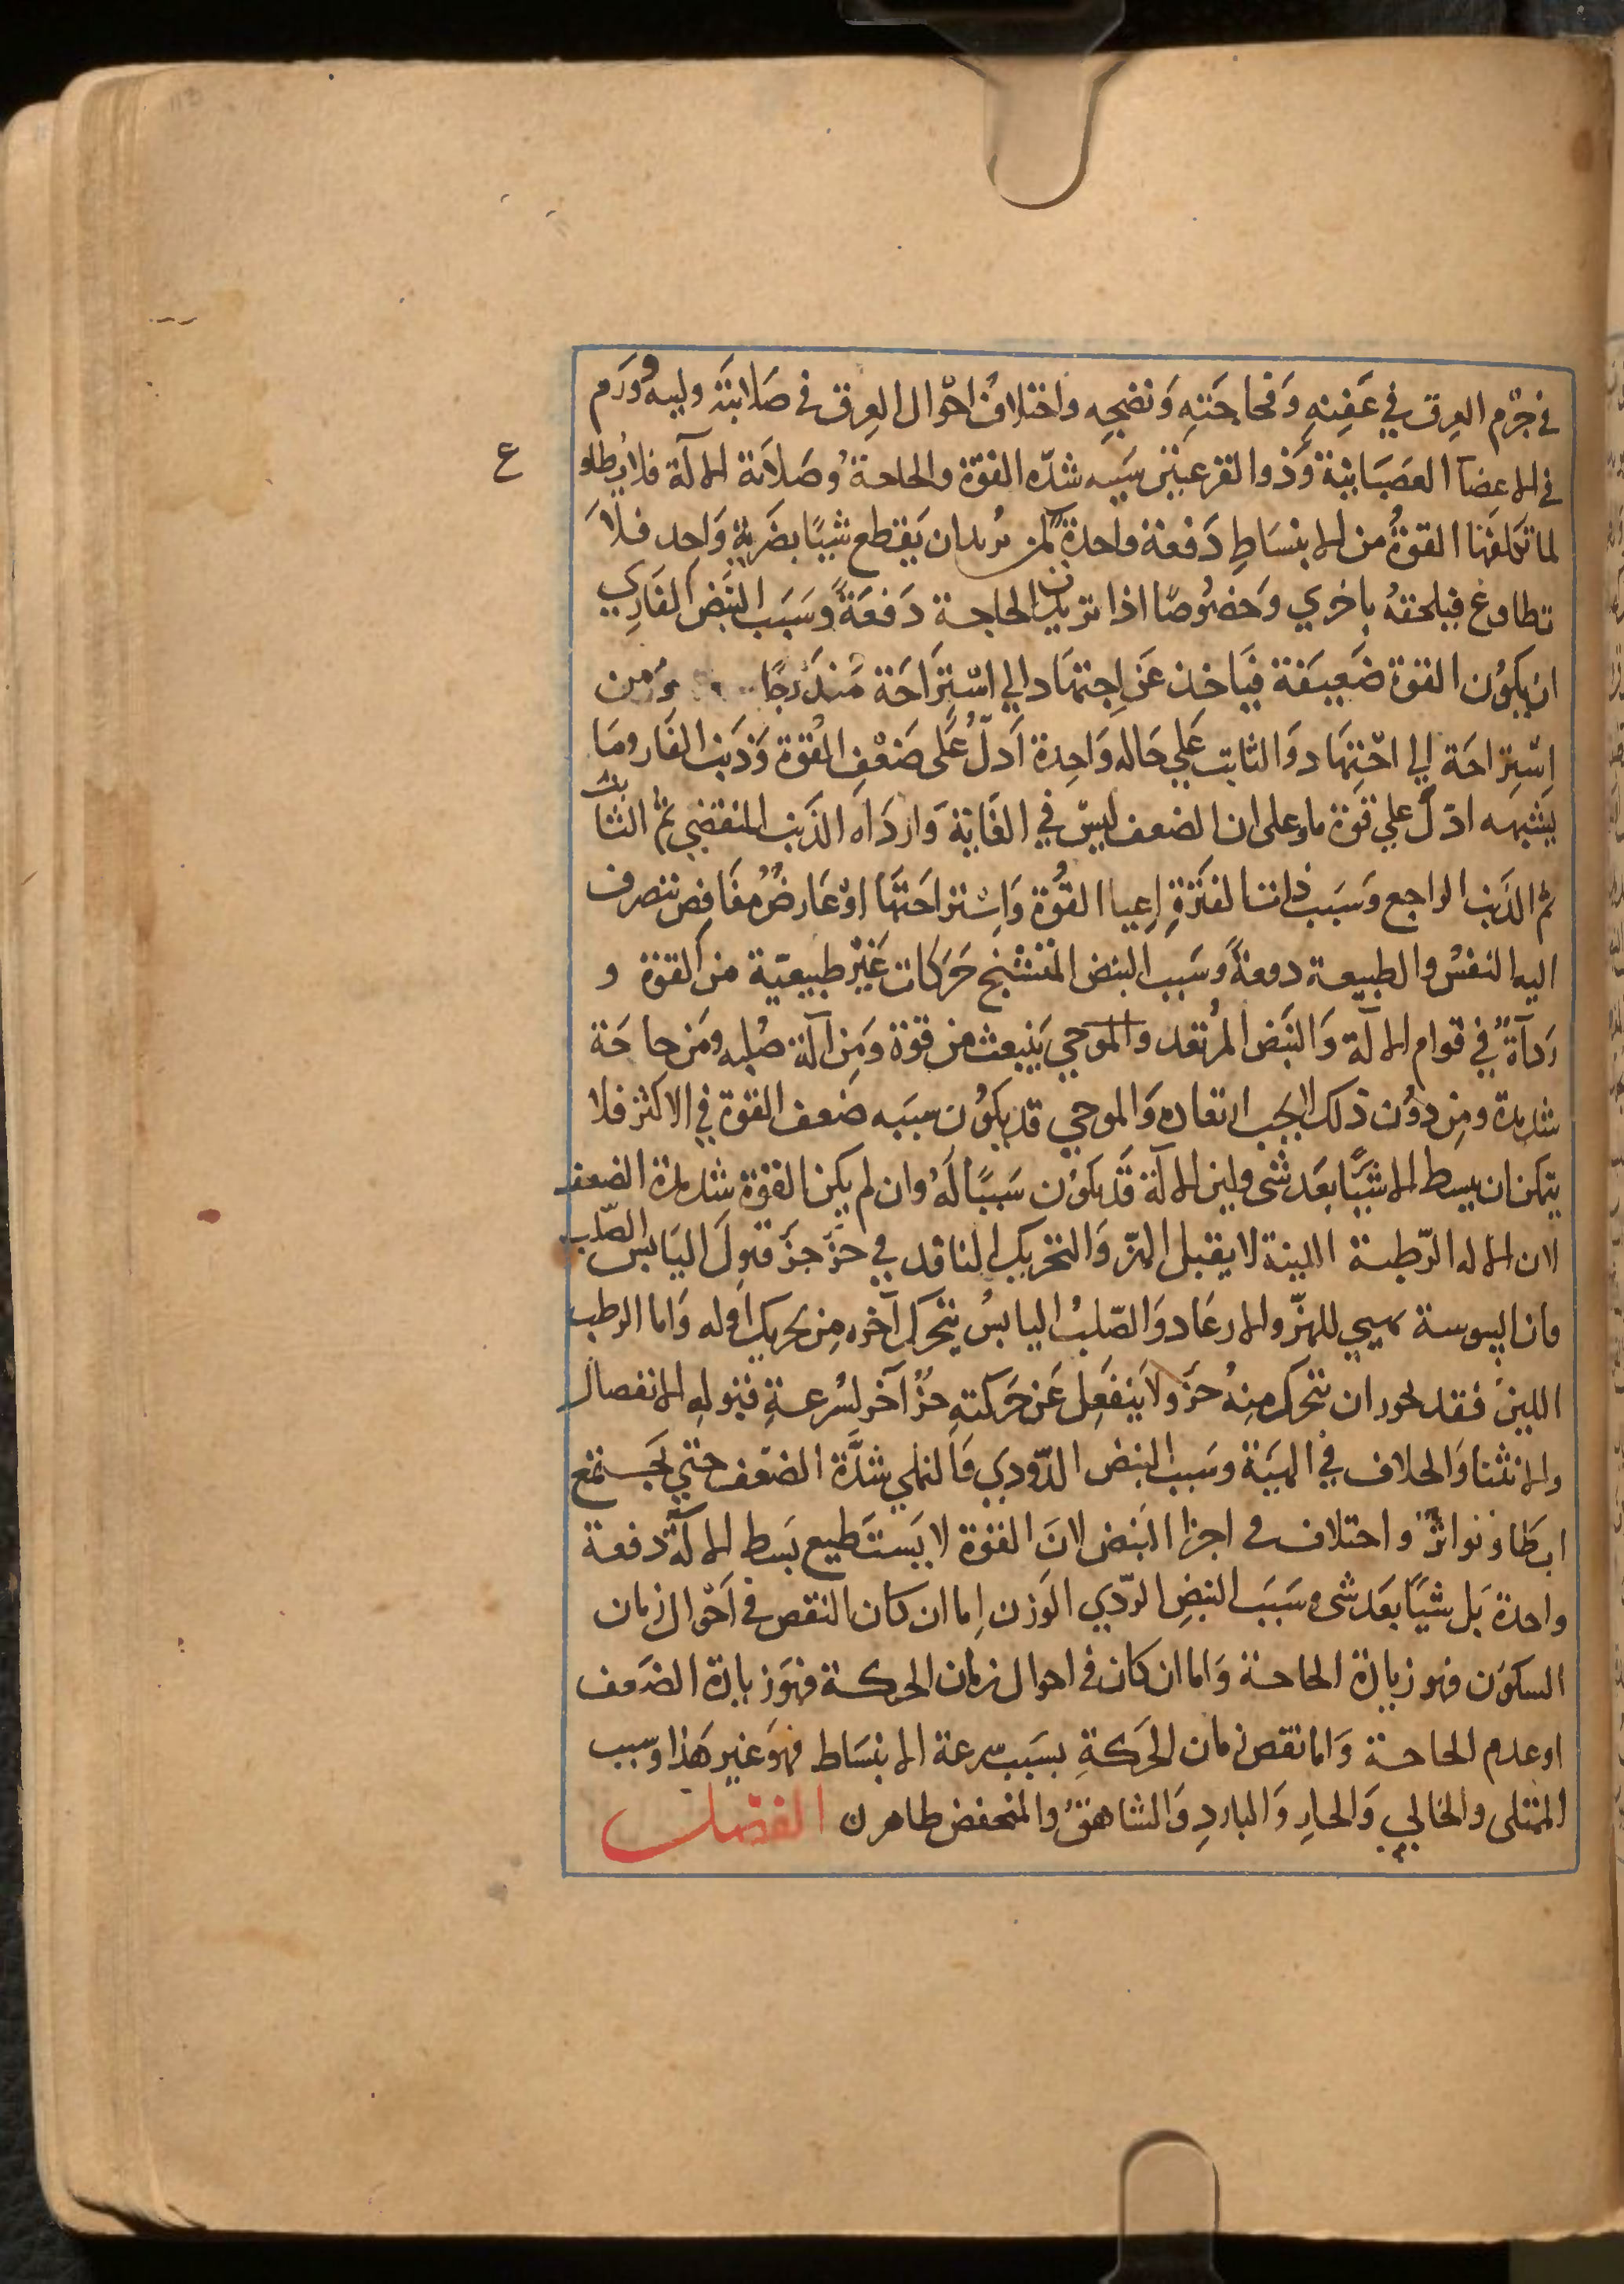 في جرم العرق في عَفِنِهِ وَفجَاجَتِهِ وَنضجِه واختلافُ احْوال العِرق في صَلابَتهِ ولينه وَورَم
في الاعضآ العَصَبَانية وَذوا القرعتين سَببه شدّه القوّة والحاجة وُصَلابَة الآلة فلا يطاو
ع
لما تكلفهَا القوةُ من الانبسَاطِ دَفعة واحدة كمن يريد ان يَقطع شيئًا بضَربةٍ وَاحدٍ فلاَ
تطاوع فيلحقهُ باخري وَخصُوصًا اذا تزيدت الحاجة دَفعَةً وسَبَب النَبض الفَاري
ان يكوُن القوة ضَعِيفَة فيَاخذ عَن اجتهَاد الي اسْتِرَاحَة مَتدَرجًا ومن
اِسْتِراحَة الي اجْتِهَاد وَالثابت عَلي حَاله وَاحِدة اَدلّ عَلى ضَعْفِ القوة وَذنب الفار ومَا
يشبهه ادّل علي قوة ما وعلى ان الضعف ليسَ في الغَاية وَارداه الذَنب المنقضي ثم الثابت
ثم الذَنب الراجع وَسَبب ذات الفَترةِ اِعيا القُوّة وَاستراحَتهَا اوْ عَارضُ مغَافِص تتصرف
اليه النفسُ والطبيعة دفعةً وسَبب النبض المتشنج حَرَكات غَيْر طبيعيّة من القوة و
رَدآةٌ في قوام الآلة وَالنَبَض المُرتعد والموجي يَنبعث من قوة وَمِن آلة صلبه ومَن حاجَة
شديدة ومِن دوُن ذلك لا يجب ارتعاده وَالموجي قد يكوُن سببه ضَعف القوة في الاكثر فلا
يتمكن ان يبسط الا شيًّا بعَد شى ولين الآلة قَد يكوُن سَببًا لَهُ وان لم يكن القوة شديدة الضعف
لان الاله الرّطبة اللينة لا يقبل الهزّ وَالتحريك النافد في جزَّ جزَّ قبولَ اليَابسِ الصّلب
فان اليبوسة تهيي للهزّ والارعَاد وَالصّلبُ اليابسُ يتحرك آخره مِن تحريك اوله وَاما الرطب
اللين فقد يجوز ان يتحرك منهُ جزَّ ولاَ ينفَعِل عَن حَركتهِ جزُّ آخر لسُرعةِ قبولهِ الانفصال
والانثنا وَالخلاف في الهيَئة وسَبب النبض الدّودي وَالنملي شدَّة الضعف حتي يَجتمع
ابطَا وَتواترٌ واختلاف في اجزا النبض لانَ القوة لا يَستطيع بَسط الآلة دفعة
واحدة بَل شيئًا بعَد شى وَسَبَب النبضِ الردّي الوَزن اِما ان كان النقص في اَحْوال زمان
السكوُن فهو زيادة الحاجة وَاما ان كان في احوال زمان الحركة فهوَ زيادة الضَعف
او عدم الحاجة وَاما نقص زمان الحَركةِ بسَبب سرعة الانبسَاط فهوَ غير هَذا وسبب
الممتلى والخالي وَالحارِ وَالباردِ وَالشاهقُ والمنخفض ظاهر الفصل